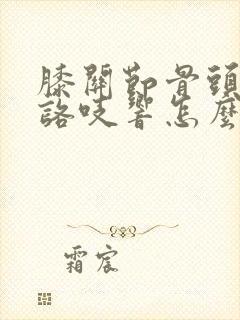 膝關節骨頭
咯吱響怎麼
霜宸